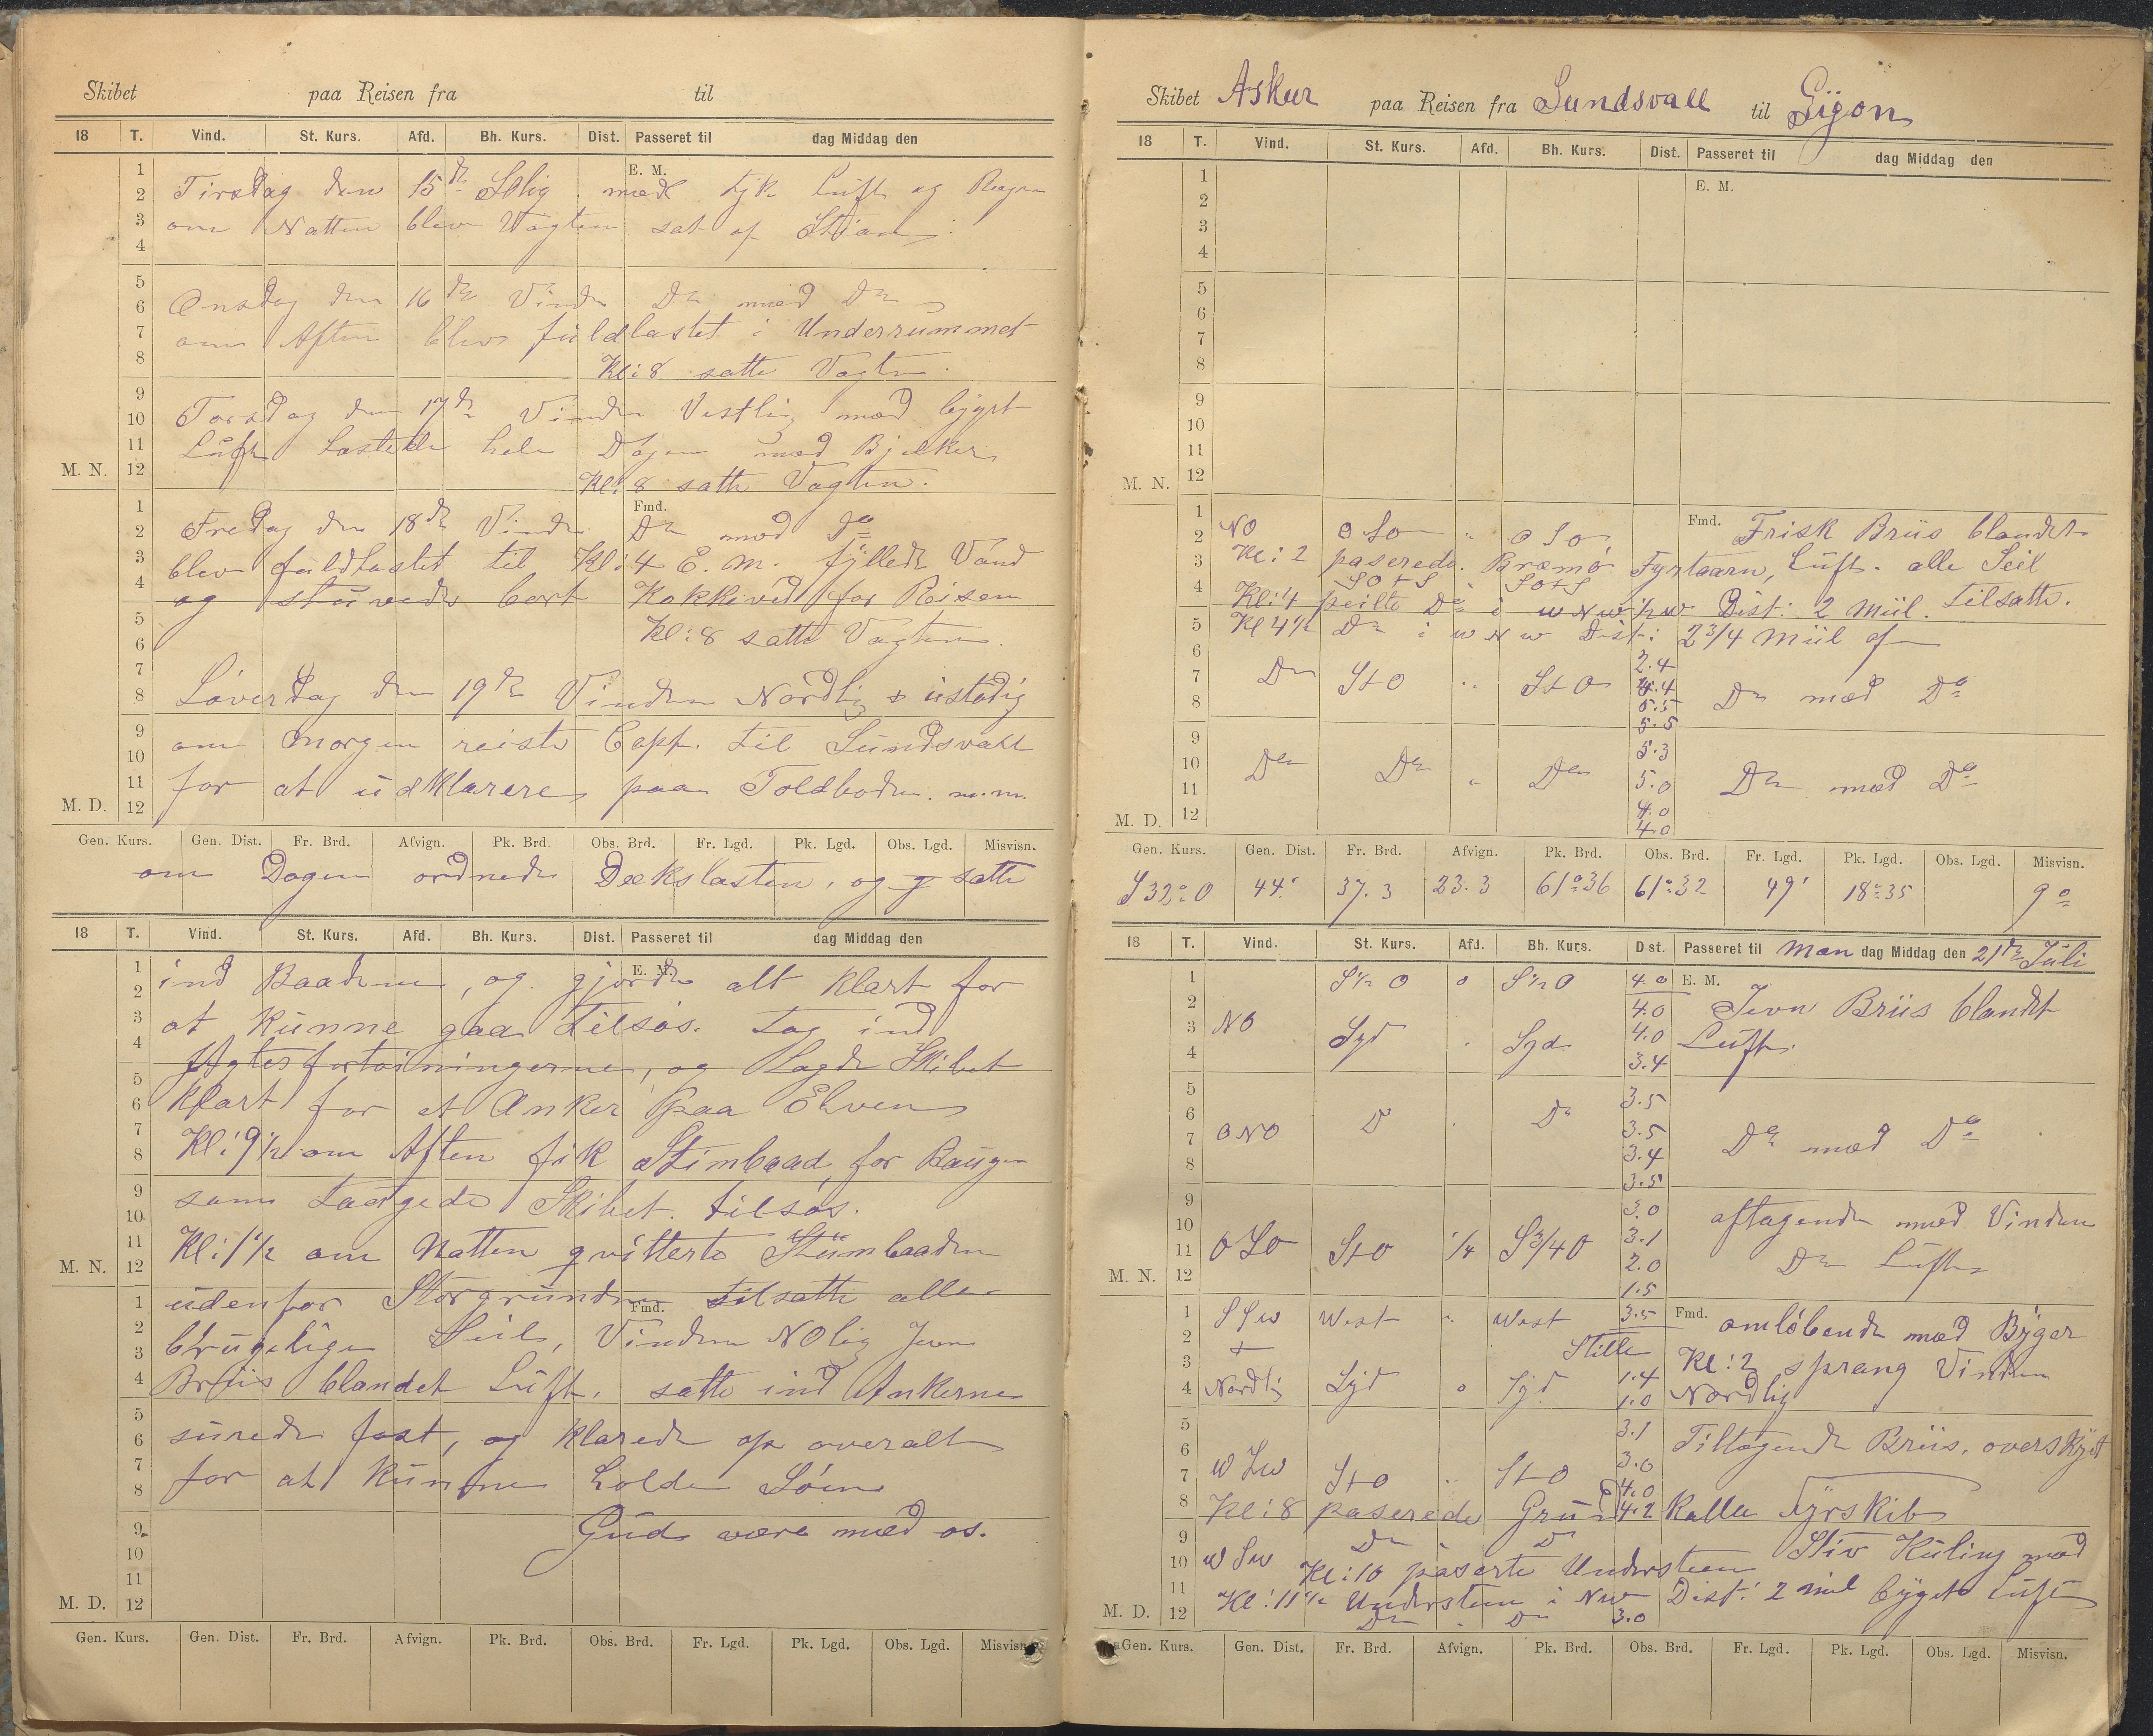 Skibet paa Reisen fra til
18 T. Vind. St. Kurs. Afd. Bh. Kurs. Dist. Passeret til dag Middag den
E. M.
Tirsdag den 15de SOlig med tyk Luft og Regn
om Natten blev Vagten sat af
Onsdag den 16de Vinden Do med Do
om Aften blev fuldlastet i Underrummet
Kl: 8 satte Vagten.
Torsdag den 17de Vinden Vestlig med bygst
Luft Lastede hele Dagen med Bjelker
M. N.
Kl: 8 satte Vagten.
Fmd.
Fredag den 18de Vinden Do med Do
blev fuldlastet til Kl: 4 E. M. fyllede Vand
og stuvede bort Kokkeved for Reisen
Kl: 8 satte Vagten.
Løverdag den 19de Vinden Nordlig & ustadig
om Morgen reiste Capt. til Sundsvall
for at udklarere paa Toldboden. m.m.
M. D.
Gen. Kurs. Gen. Dist. Fr. Brd. Afvign. Pk. Brd. Obs. Brd. Fr. Lgd. Pk. Lgd. Obs. Lgd. Misvisn.
om Dagen ordnede Dækslasten, og satte
18 T. Vind. St. Kurs. Afd. Bh. Kurs. Dist. Passeret til dag Middag den
E. M.
ind Baadene, og gjorde alt klart for
at kunne gaa tilsøs. tog ind
Agterfortøiningerne, og Lagde Skibet
klart for et Anker paa Elven
Kl: 9 1/2 om Aften fik Stimbaad for Baugen
som taugede Skibet tilsøs.
Kl: 1 1/2 om Natten qvitterte Stimbaaden
M. N.
udenfor Storgrunden Fmd. tilsatte alle
brugelige Seil, Vinden NOlig Jevn
Briis blandet Luft. satte ind Ankerne
surede fast, og klarede op overalt
for at kunne holde Søen
Gud være med os.
M. D.
Gen. Kurs. Gen. Dist. Fr. Brd. Afvign. Pk. Brd. Obs. Brd. Fr. Lgd. Pk. Lgd. Obs. Lgd. Misvisn.
Skibet Askur paa Reisen fra Sundsvall til Gijon
18 T. Vind. St. Kurs. Afd. Bh. Kurs. Dist. Passeret til dag Middag den
E. M.
M. N.
NO OSO " OSO Fmd. Frisk Briis blandet
Kl: 2 paserede Bræmø Fyrtaarn, Luft. alle Seil
SOtS " SOtS
Kl: 4 peilte Do i WNW 1/2 W Dist: 2 Miil. tilsatte.
Kl 4 1/2 Do i WNW Dist: 2 3/4 Miil af
2.4
Do StO " StO 4.4 Do med Do
5.5
5.5
5.3
Do Do " Do 5.0 Do med Do
4.0
M. D. 4.0
Gen. Kurs. Gen. Dist. Fr. Brd. Afvign. Pk. Brd. Obs. Brd. Fr. Lgd. Pk. Lgd. Obs. Lgd. Misvisn.
S 32° O 44' 37.3 23.3 61° 36 61° 32 49' 18° 35 9°
18 T. Vind. St. Kurs. Afd. Bh. Kurs. Dist. Passeret til Man dag Middag den 21de Juli
S 1/2 O o S 1/2 O 4.0 E. M.
4.0 Jevn Briis blandt
NO Syd " Syd 4.0 Luft.
3.4
3.5
ONO Do " Do 3.5 Do med Do
3.4
3.5
3.0 aftagende med Vinden
OSO StO 1/4 S 3/4 O 3.1
2.0 Do Luft
M. N. 1.5
SSW West " West 3.5 Fmd. omløbende med Byger
Stille Kl: 2 sprang Vinden
Nordlig Syd o Syd 1.4 Nordlig
1.0
3.1 Tiltagende Briis, overskyet
WSW StO " StO 3.0
4.0
Kl: 8 paserede Grund 4.2 Kalle Fyrskib
Do " Do
WSW Kl: 10 paserte Understeen Stiv Kuling med
Kl: 11 1/2 Understeen i NW Dist: 2 mil byget Luft
M. D. Do " Do 3.0
Gen. Kurs. Gen. Dist. Fr. Brd. Afvign. Pk. Brd. Obs. Brd. Fr. Lgd. Pk. Lgd. Obs. Lgd. Misvisn.